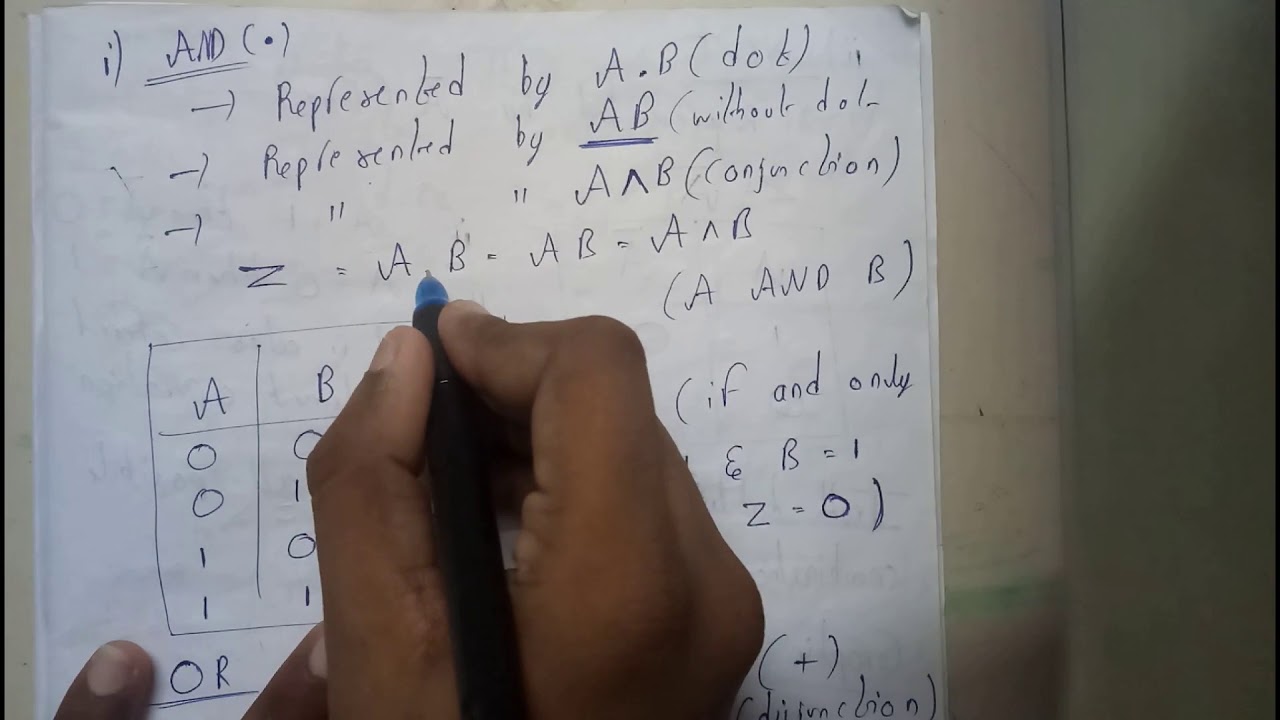 i) AND (•)
→ Represented by A.B (dot)
→ Represented by AB (without dot
→ " " A∧B (conjunction)
Z = A.B = AB = A∧B
(A AND B)
A B (if and only
0 0 & B = 1
0 1 Z = 0)
1 0
1 1
OR (+)
(disjunction)